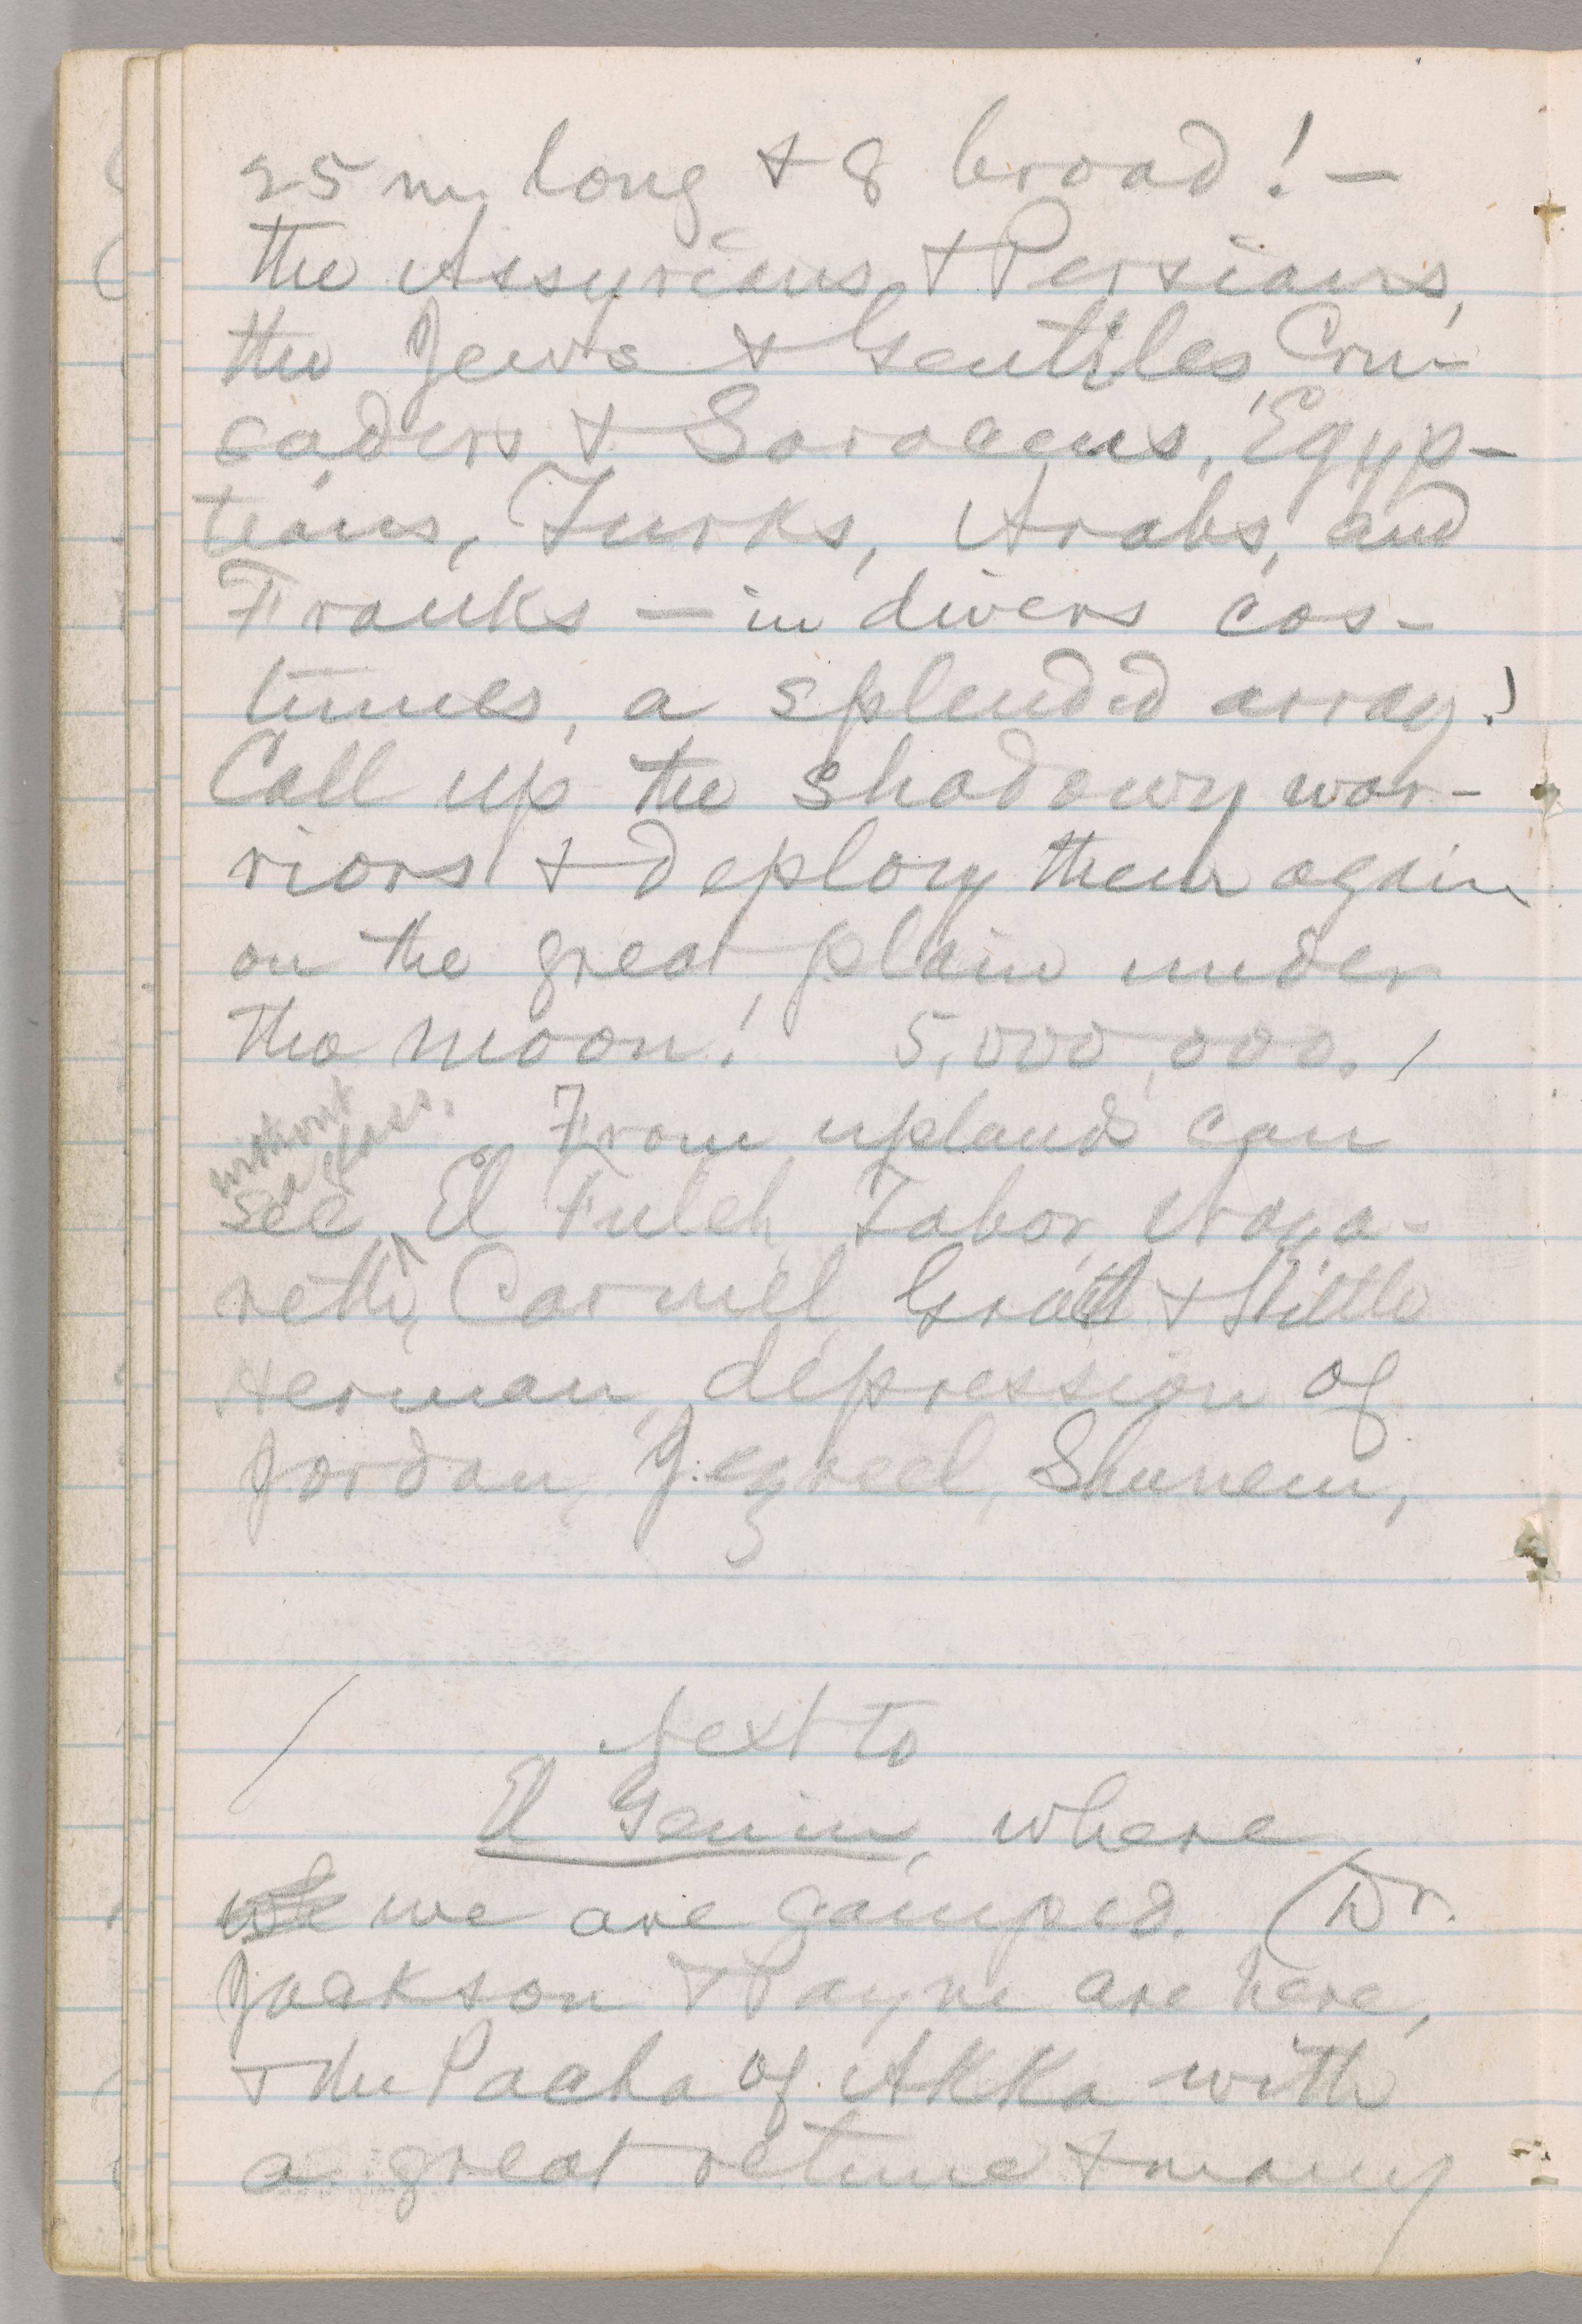 25 m long & 8 broad! —
the Assyrians & Persians,
the Jews & Gentiles, Cru-
saders & Saracens, Egyp-
tians, Turks, Arabs, and
Franks — in divers cos-
tumes, a splendid array!
Call up the shadowy war-
riors & deploy them again
on the great plain under
the moon! 5,000,000. /
From upland can
without
a glass.
see El Fuleh, Tabor, Naza-
reth, Carmel, Great & Little
Herman, depression of
Jordan, Jezreel, Shunem,
Next to
El Genin, where
we are camped. (Dr.
Jackson & Payne are here,
& the Pacha of Akka with
a great retinue & many